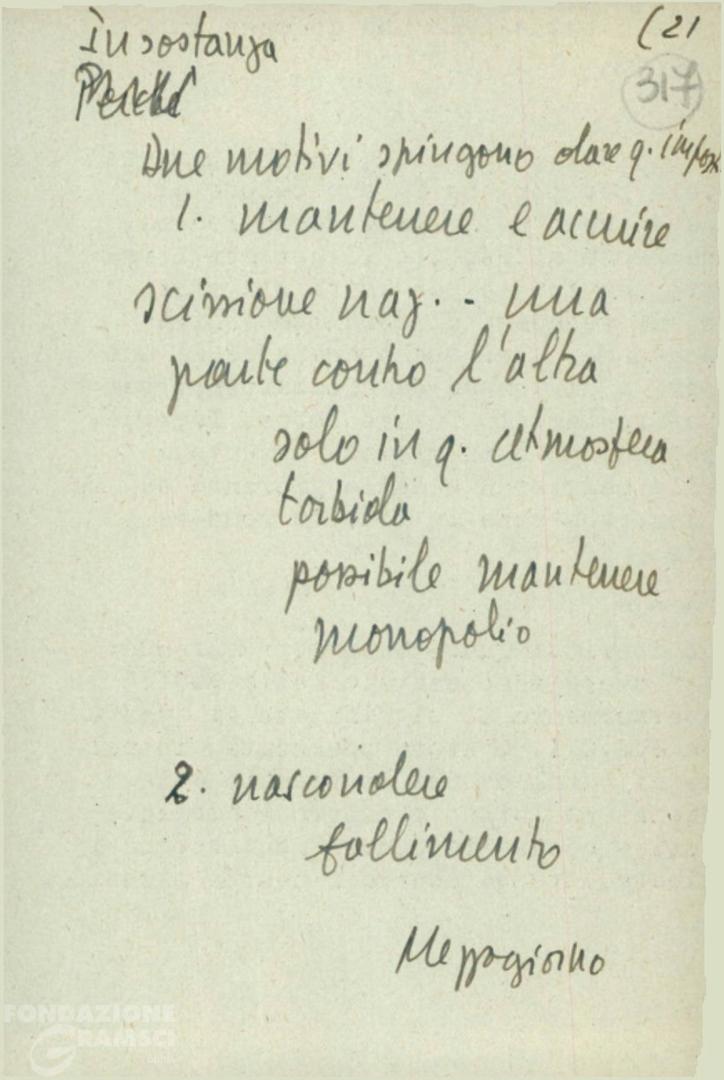 (21
317
In sostanza
Perché
Due motivi spingono dare q. impos
1. mantenere e acuire
scissione naz. - una
parte contro l'altra
solo in q. atmosfera
torbida
possibile mantenere
monopolio
2. nascondere
fallimento
Mezzogiorno
FONDAZIONE
GRAMSCI